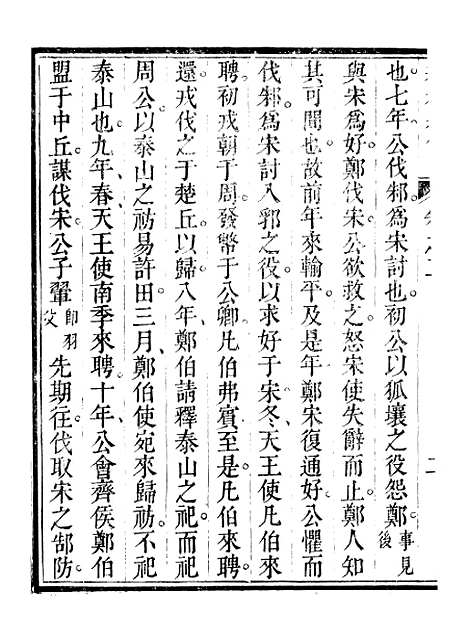 也七年公伐邾爲宋討也初公以狐壤之役怨鄭事見後
與宋爲好鄭伐宋公欲救之怒宋使失辭而止鄭人知
其可閒也故前年來輸平及是年鄭宋復通好公懼而
伐邾爲宋討入郛之役以求好于宋冬天王使凡伯來
聘初戎朝于周發幣于公卿凡伯弗賓至是凡伯來聘
還戎伐之于楚丘以歸八年鄭伯請釋泰山之祀而祀
周公以泰山之祊易許田三月鄭伯使宛來歸祊不祀
泰山也九年春天王使南季來聘十年公會齊侯鄭伯
盟于中丘謀伐宋公子翬卽羽父先期往伐取宋之郜防